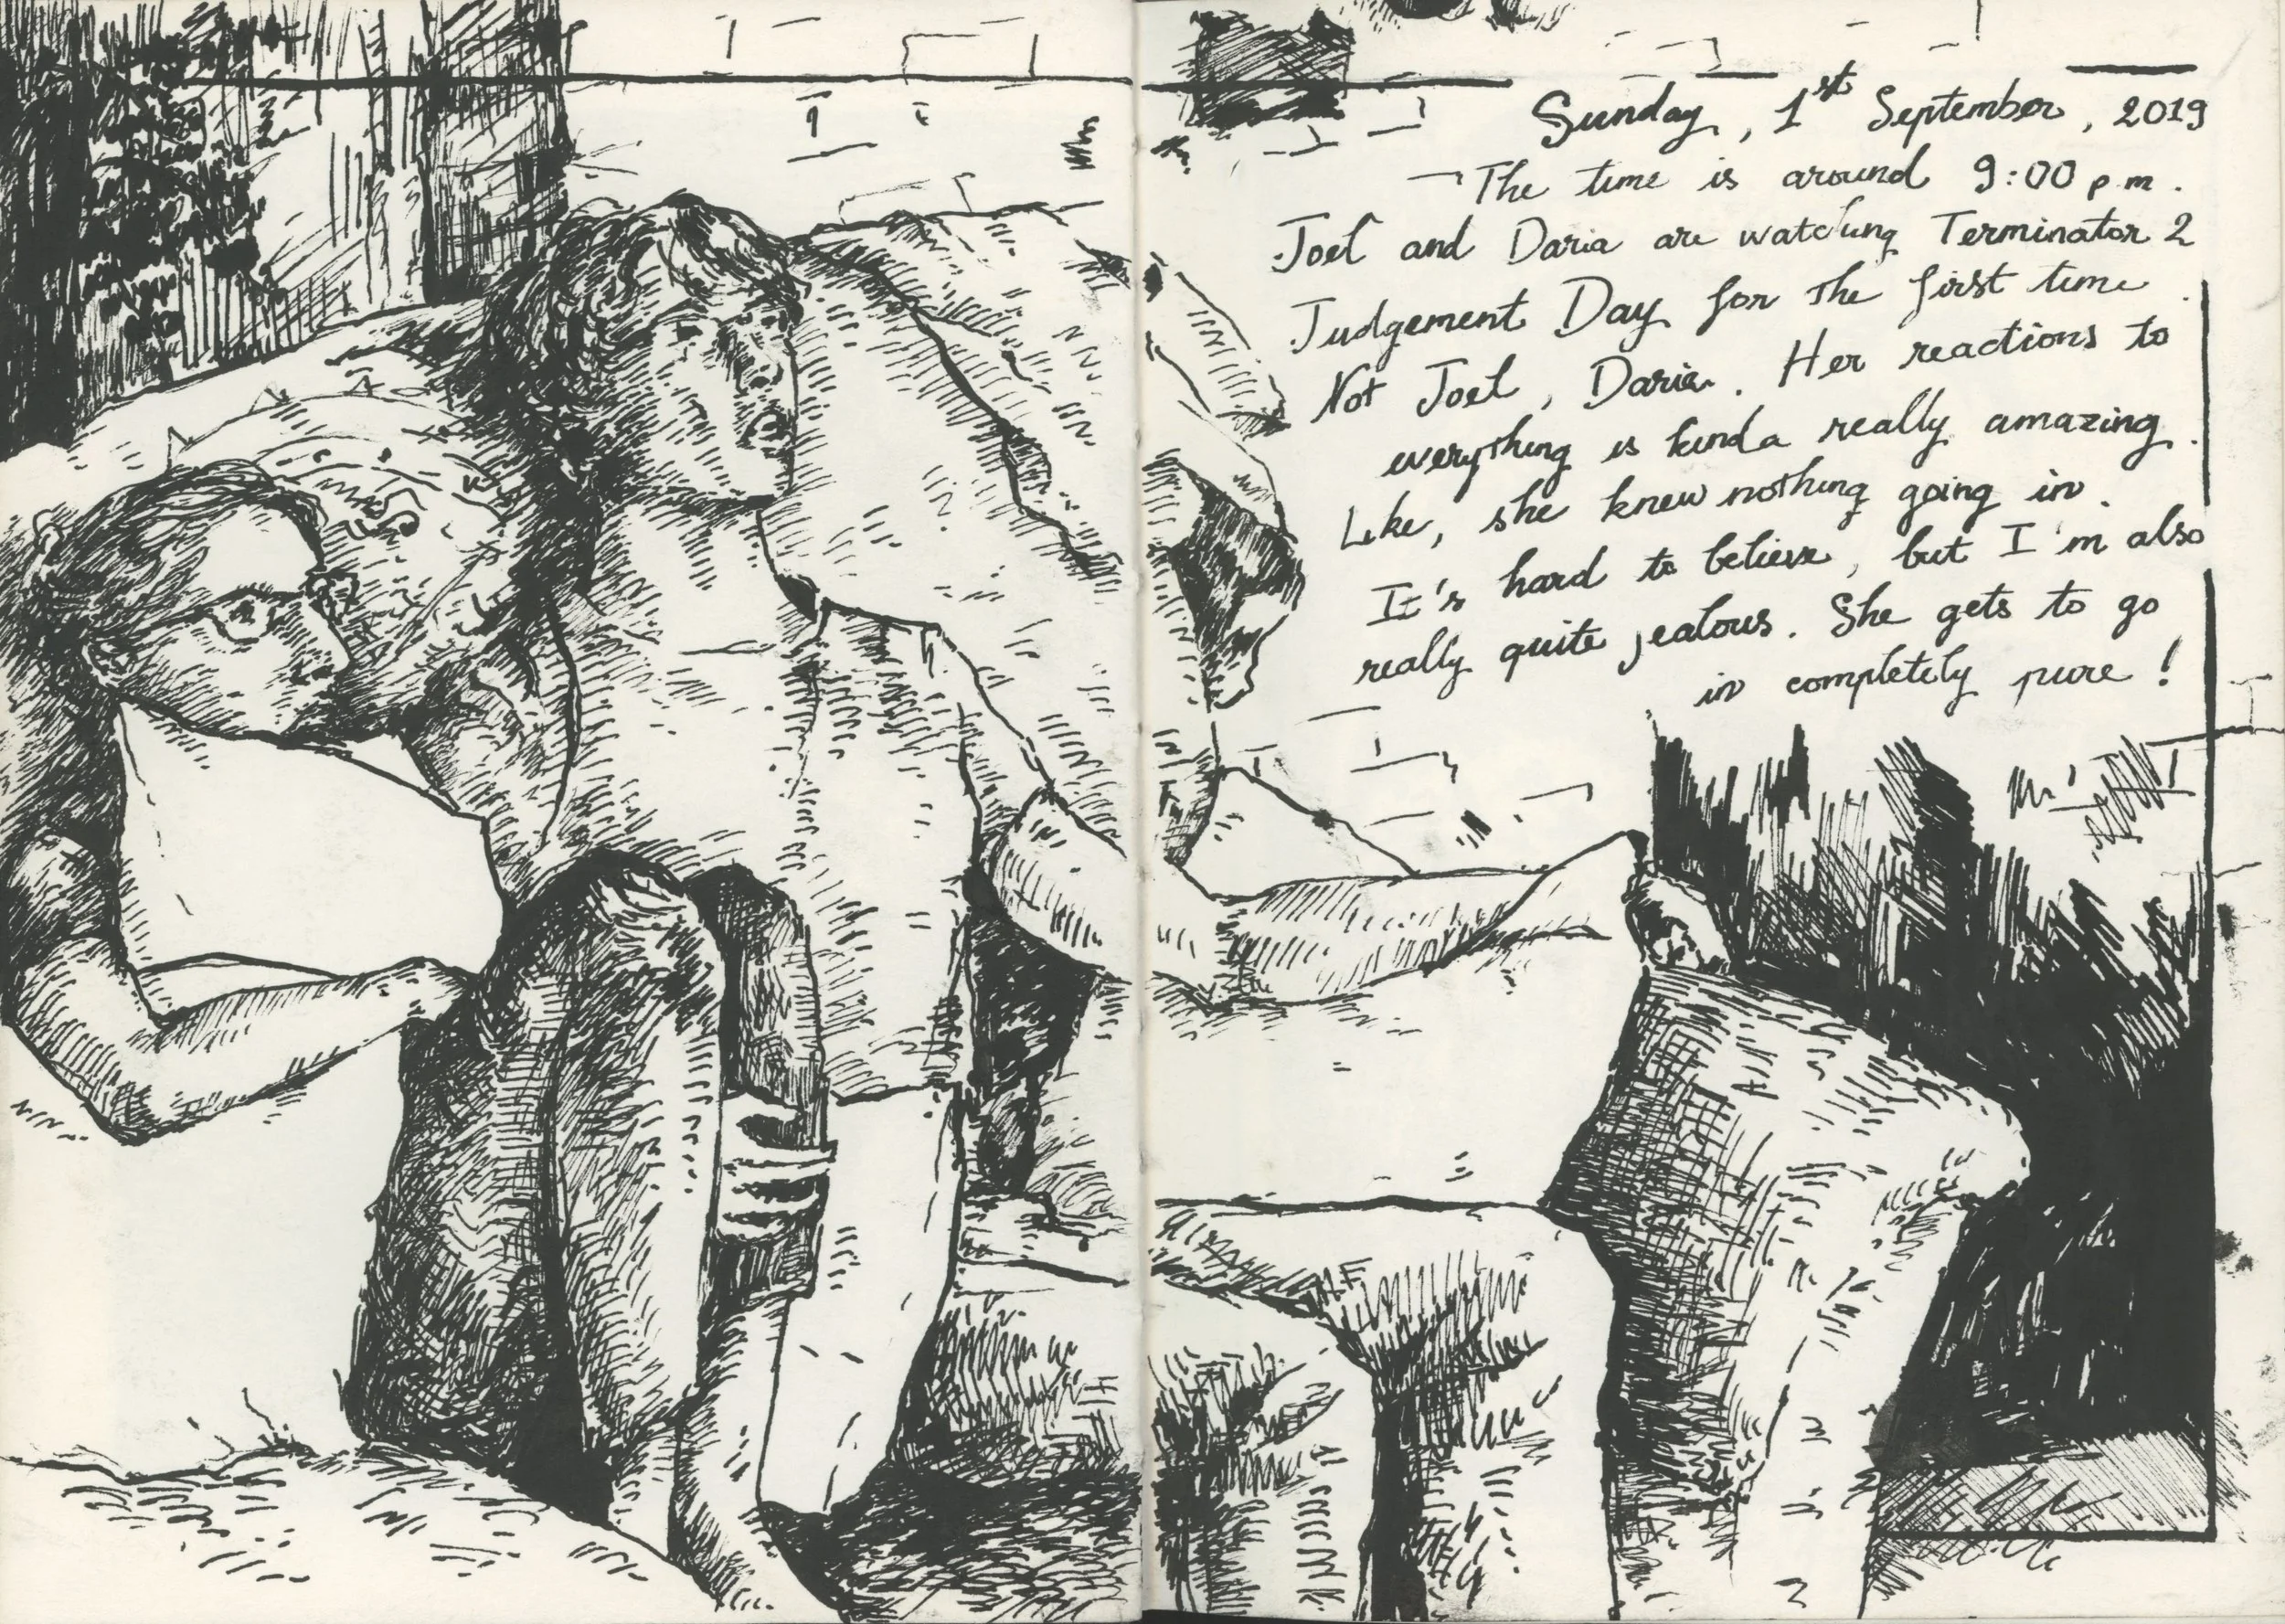 Sunday, 1st September, 2019
The time is around 9:00 p.m.
Joel and Daria are watching Terminator 2
Judgement Day for the first time.
Not Joel, Daria. Her reactions to
everything is kinda really amazing.
Like, she knew nothing going in.
It's hard to believe, but I'm also
really quite jealous. She gets to go
in completely pure!